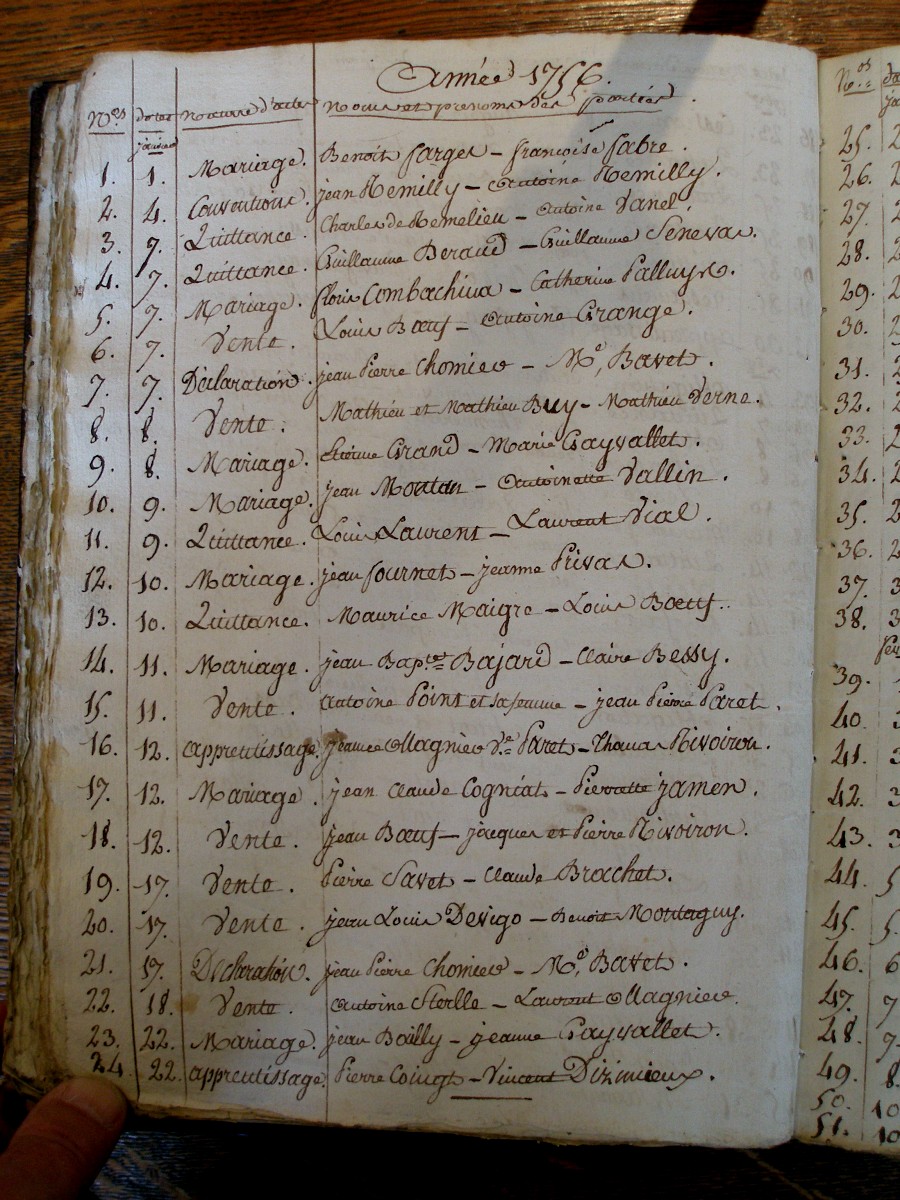 Année 1756.
Nos dates nature d'actes Noms et prenoms des parties.
janvier
1. 1. Mariage. Benoit farges - françoise fabre.
2. 4. Conventions. jean Remilly - Antoine Remilly.
3. 7. Quittance. Charles de Remelieu - Antoine Vanel.
4. 7. Quittance. Guillaume Beraud - Guillaume Senevas.
5. 7. Mariage. floris Combachiva - Catherine Palluys.
6. 7. Vente. Louis Boeuf - Antoine Grange.
7. 7. Déclaration. jean Pierre Chomiec - Me, Bavet.
8. 8. Vente. Mathieu et Mathieu Buy - Mathieu Verne.
9. 8. Mariage. Etienne Grand - Marie Gayvallet.
10. 9. Mariage. jean Montan - Antoinette Vallin.
11. 9. Quittance. Louis Laurent - Laurent Vial.
12. 10. Mariage. jean fournet - jeanne Privas.
13. 10. Quittance. Maurice Maigre - Louis Boeuf.
14. 11. Mariage. jean Bapt.te Bajard - Claire Bessy.
15. 11. Vente. Antoine Point et sa femme - jean Pierre Paret.
16. 12. apprentissage. jeanne Magniec v.e Paret - Thomas Rivoiron.
17. 12. Mariage. jean Claude Cogniat - Pierrette jamen.
18. 12. Vente. jean Boeuf - jacques et Pierre Rivoiron.
19. 17. Vente. Pierre Savet - Claude Brochet.
20. 17. Vente. jean Louis Devigo - Benoit Montaguy.
21. 17. Déclaration. jean Pierre Chomiec - Me, Bavet.
22. 18. Vente. Antoine Sterlle - Laurent Magniec.
23. 22. Mariage. jean Bailly - jeanne Gayvallet.
24. 22. apprentissage. Pierre Coingt - Vincent Dizimieux.
Nos
25.
26.
27.
28.
29.
30.
31.
32.
33.
34.
35.
36.
37.
38.
39.
40.
41.
42.
43.
44. 5
45. 5.
46. 6
47. 7
48. 7.
49. 8.
50. 10
51. 10